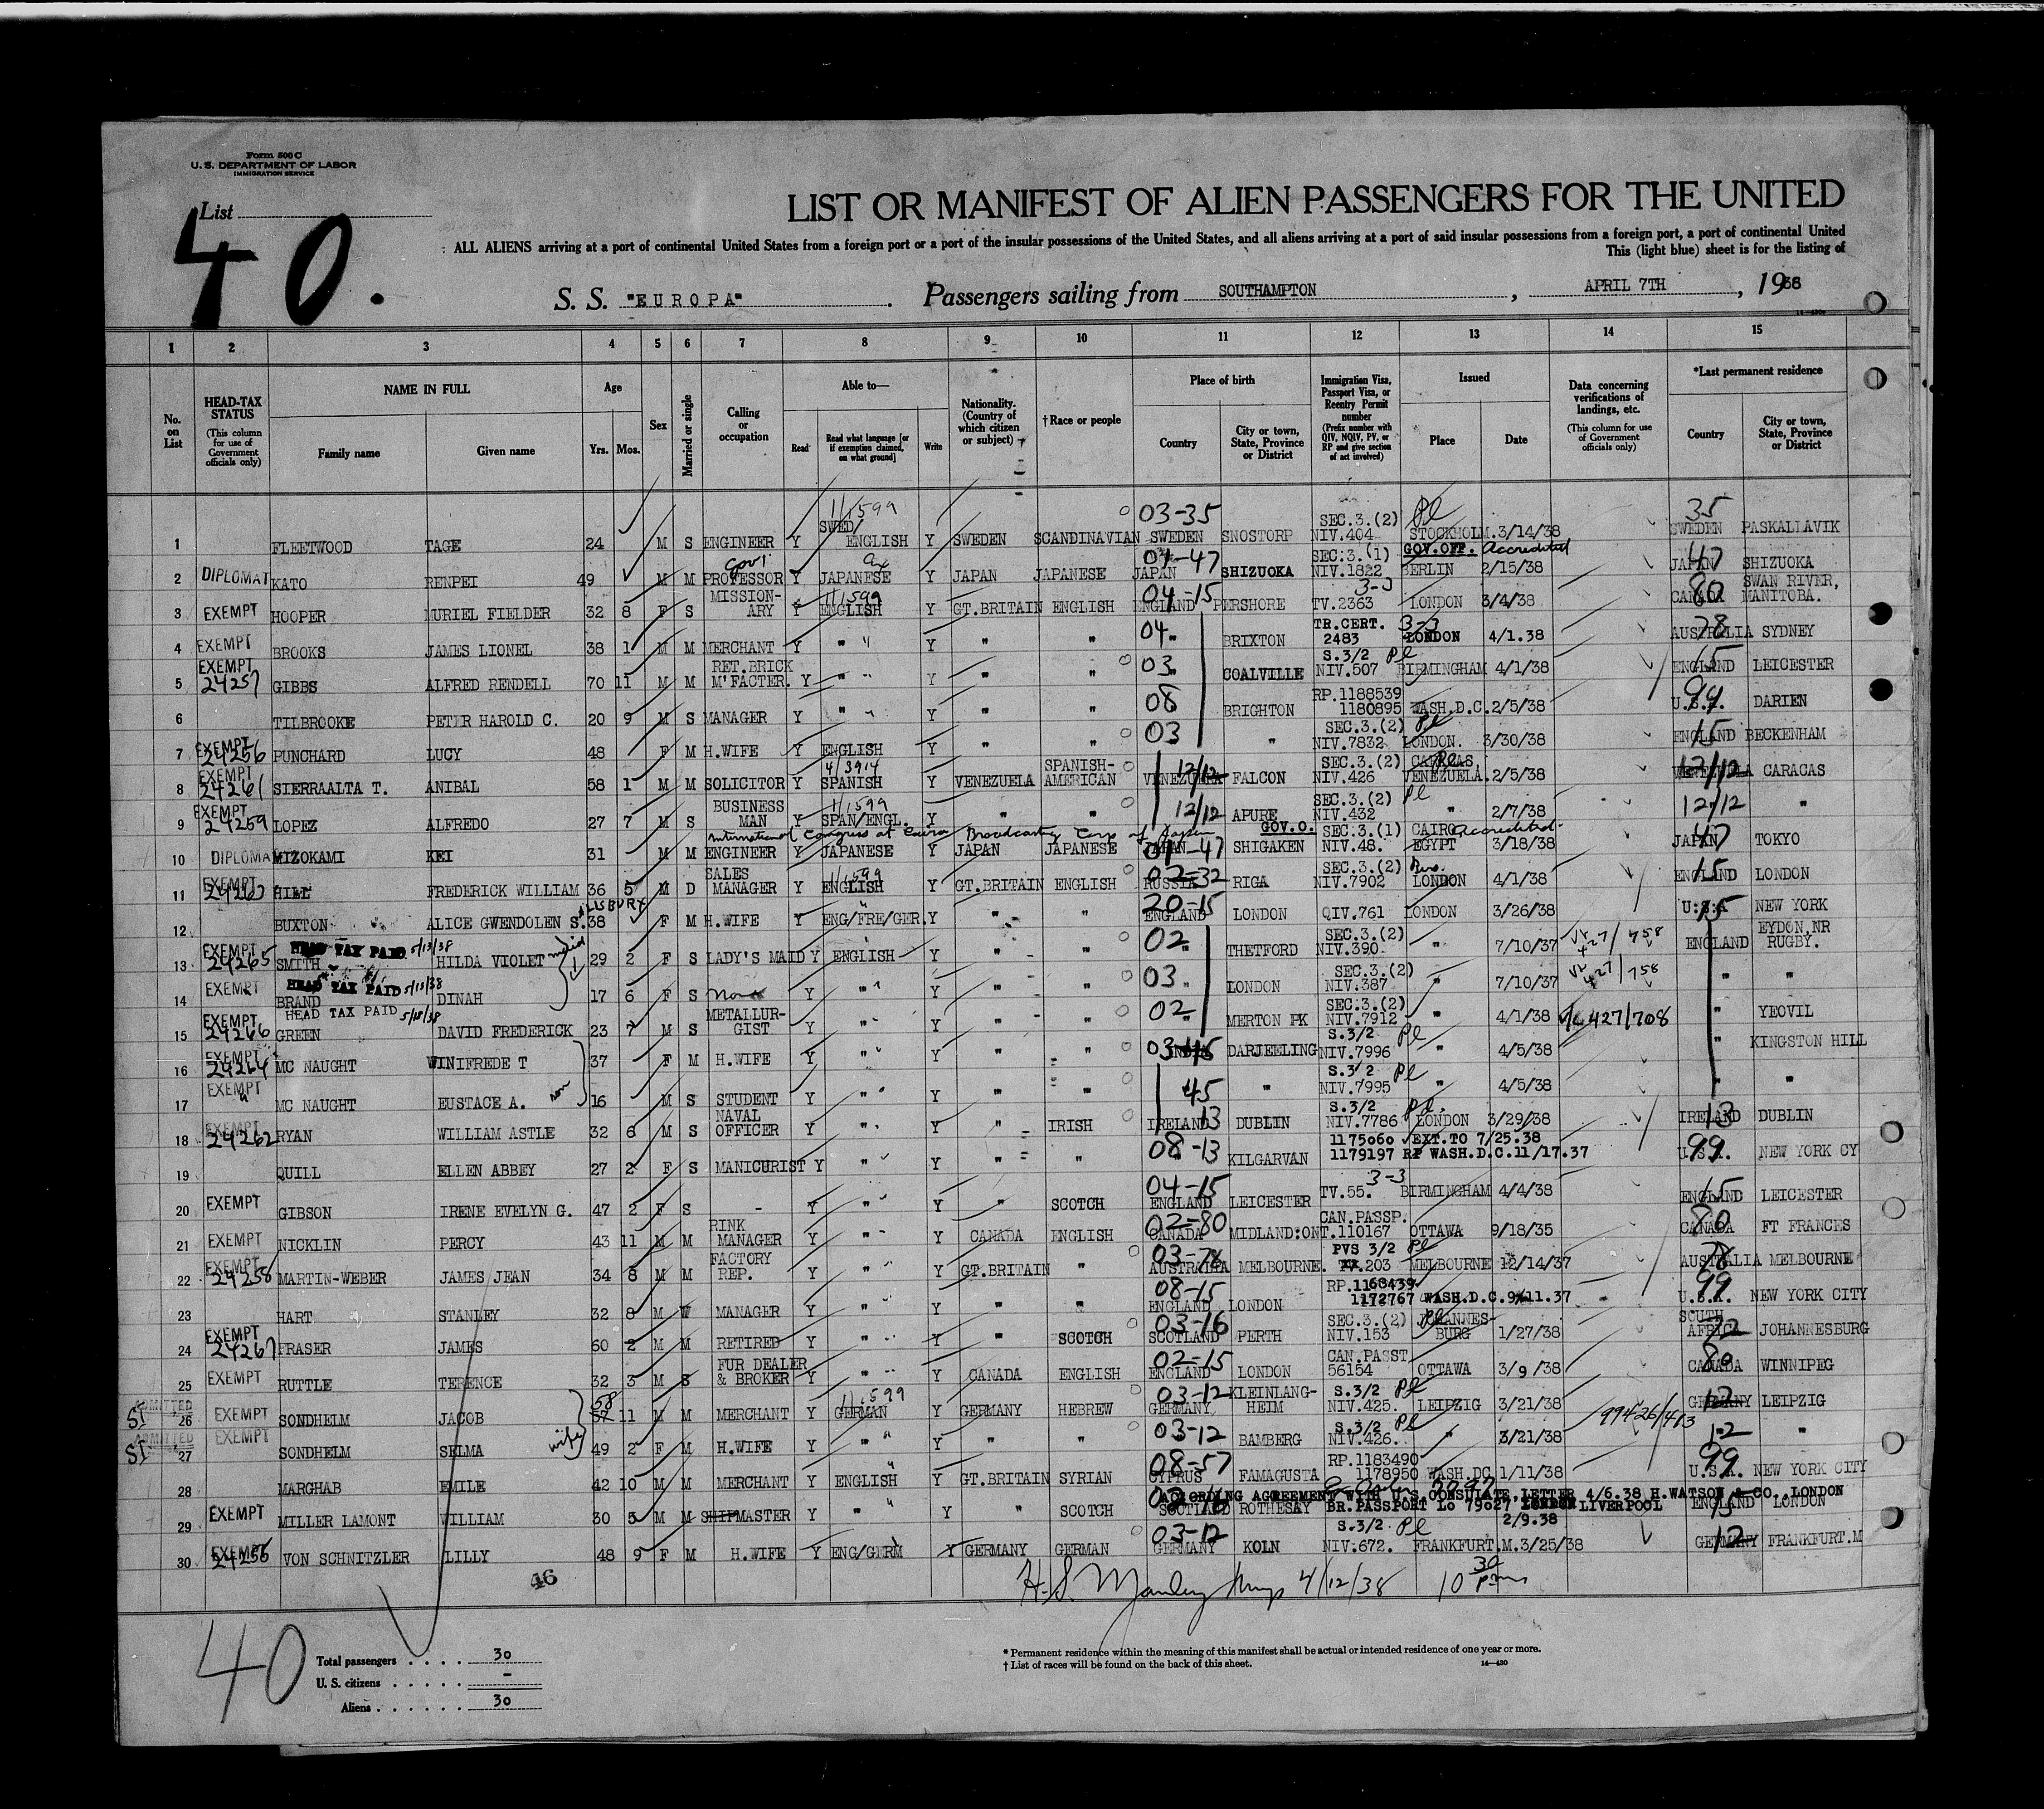 Form 500 C
U. S. DEPARTMENT OF LABOR
IMMIGRATION SERVICE
List
40.
LIST OR MANIFEST OF ALIEN PASSENGERS FOR THE UNITED
ALL ALIENS arriving at a port of continental United States from a foreign port or a port of the insular possessions of the United States, and all aliens arriving at a port of said insular possessions from a foreign port, a port of continental United
This (light blue) sheet is for the listing of
S. S. "EUROPA". Passengers sailing from SOUTHAMPTON, APRIL 7TH, 1938
1 2 3 4 5 6 7 8 9 10 11 12 13 14 15
No. on List
HEAD-TAX STATUS (This column for use of Government officials only)
NAME IN FULL Family name Given name
Age Yrs. Mos.
Sex
Married or single
Calling or occupation
Able to— Read Read what language [or if exemption claimed, on what ground] Write
Nationality. (Country of which citizen or subject)
†Race or people
Place of birth Country City or town, State, Province or District
Immigration Visa, Passport Visa, or Reentry Permit number (Prefix number with QIV, NQIV, PV, or RP and give section of act involved)
Issued Place Date
Data concerning verifications of landings, etc. (This column for use of Government officials only)
*Last permanent residence Country City or town, State, Province or District
1 FLEETWOOD TAGE 24 M S ENGINEER Y SWED/ ENGLISH 1/1599 Y SWEDEN SCANDINAVIAN SWEDEN 03-35 SNOSTORP SEC.3.(2) NIV.404 STOCKHOLM. 3/14/38 SWEDEN 35 PASKALLAVIK
2 DIPLOMAT KATO RENPEI 49 M M PROFESSOR Gov't Y JAPANESE Y JAPAN JAPANESE JAPAN 04-47 SHIZUOKA SEC.3.(1) NIV.1822 GOV.OFF. Accredited BERLIN 2/15/38 JAPAN 47 SHIZUOKA
3 EXEMPT HOOPER MURIEL FIELDER 32 8 F S MISSION-ARY Y ENGLISH 1/1599 Y GT.BRITAIN ENGLISH ENGLAND 04-15 PERSHORE TV.2363 3-3 LONDON 3/4/38 CANADA 80 SWAN RIVER, MANITOBA.
4 EXEMPT BROOKS JAMES LIONEL 38 1 M M MERCHANT Y " " Y " " 04 " BRIXTON TR.CERT. 2483 3-3 LONDON 4/1.38 AUSTRALIA 78 SYDNEY
5 EXEMPT 24257 GIBBS ALFRED RENDELL 70 11 M M RET.BRICK M'FACTER. Y " " Y " " 03 " COALVILLE S.3/2 NIV.507 Pl BIRMINGHAM 4/1/38 ENGLAND 15 LEICESTER
6 TILBROOKE PETER HAROLD C. 20 9 M S MANAGER Y " " Y " " 08 BRIGHTON RP.1188539 1180895 WASH.D.C. 2/5/38 U.S.A. 99 DARIEN
7 EXEMPT 24256 PUNCHARD LUCY 48 F M H.WIFE Y ENGLISH Y " " 03 " SEC.3.(2) NIV.7832 Pl LONDON. 3/30/38 ENGLAND 15 BECKENHAM
8 EXEMPT 24261 SIERRAALTA T. ANIBAL 58 1 M M SOLICITOR Y SPANISH 4/3914 Y VENEZUELA SPANISH-AMERICAN VENEZUELA 12/12 FALCON SEC.3.(2) NIV.426 CARACAS, Pl VENEZUELA. 2/5/38 VENEZUELA 12/12 CARACAS
9 EXEMPT 24259 LOPEZ ALFREDO 27 7 M S BUSINESS MAN Y SPAN/ENGL. 1/1599 Y " " 12/12 APURE SEC.3.(2) NIV.432 Pl " 2/7/38 12/12 "
International Congress at Cairo Broadcasting Corp of Japan
10 DIPLOMA MIZOKAMI KEI 31 M M ENGINEER Y JAPANESE Y JAPAN JAPANESE JAPAN 01-47 SHIGAKEN GOV.O. SEC.3.(1) NIV.48. CAIRO Accredited EGYPT 3/18/38 JAPAN 47 TOKYO
11 EXEMPT 24260 HILL FREDERICK WILLIAM 36 5 M D SALES MANAGER Y ENGLISH 1/1599 Y GT.BRITAIN ENGLISH RUSSIA 02-32 RIGA SEC.3.(2) NIV.7902 Bus. LONDON 4/1/38 ENGLAND 15 LONDON
12 BUXTON ALICE GWENDOLEN SALISBURY 38 F M H.WIFE Y ENG/FRE/GER. Y " " ENGLAND 20-15 LONDON QIV.761 LONDON 3/26/38 U.S.A 15 NEW YORK
13 EXEMPT 24265 HEAD TAX PAID 5/13/38 SMITH HILDA VIOLET maid 29 2 F S LADY'S MAID Y ENGLISH Y " " 02 " THETFORD SEC.3.(2) NIV.390 " 7/10/37 427/758 ENGLAND EYDON,NR RUGBY.
14 EXEMPT " HEAD TAX PAID 5/13/38 BRAND DINAH 17 6 F S None Y " " Y " " 03 " LONDON SEC.3.(2) NIV.387 " 7/10/37 427/758 " "
15 EXEMPT 24266 HEAD TAX PAID 5/18/38 GREEN DAVID FREDERICK 23 7 M S METALLUR-GIST Y " " Y " " 02 " MERTON PK SEC.3.(2) NIV.7912 " 4/1/38 427/708 " YEOVIL
16 EXEMPT 24264 MC NAUGHT WINIFREDE T 37 F M H.WIFE Y " " Y " " 03-45 INDIA DARJEELING S.3/2 NIV.7996 Pl " 4/5/38 " KINGSTON HILL
17 EXEMPT " MC NAUGHT EUSTACE A. son 16 M S STUDENT Y " " Y " " 45 " S.3/2 NIV.7995 Pl 4/5/38 " "
18 EXEMPT 24262 RYAN WILLIAM ASTLE 32 6 M S NAVAL OFFICER Y " " Y " IRISH IRELAND 13 DUBLIN S.3/2 NIV.7786 Pl. LONDON 3/29/38 IRELAND 13 DUBLIN
19 QUILL ELLEN ABBEY 27 2 F S MANICURIST Y " " Y " " 08-13 KILGARVAN 1175060 EXT.TO 7/25.38 1179197 RP WASH.D.C. 11/17.37 U.S.A. 99 NEW YORK CY
20 EXEMPT GIBSON IRENE EVELYN G. 47 2 F S - Y " " Y " SCOTCH ENGLAND 04-15 LEICESTER TV.55. 3-3 BIRMINGHAM 4/4/38 ENGLAND 15 LEICESTER
21 EXEMPT NICKLIN PERCY 43 11 M M RINK MANAGER Y " " Y CANADA ENGLISH CANADA 02-80 MIDLAND:ONT. CAN.PASSP. 110167 OTTAWA 9/18/35 CANADA 80 FT FRANCES
22 EXEMPT 24258 MARTIN-WEBER JAMES JEAN 34 8 M M FACTORY REP. Y " " Y GT.BRITAIN " AUSTRALIA 03-78 MELBOURNE. PVS 3/2 203 Pl MELBOURNE 12/14/37 AUSTRALIA 78 MELBOURNE
23 HART STANLEY 32 8 M W MANAGER Y " " Y " " ENGLAND 08-15 LONDON RP.1163439 1172767 WASH.D.C. 9/11.37 U.S.A. 99 NEW YORK CITY
24 EXEMPT 24267 FRASER JAMES 60 2 M M RETIRED Y " " Y " SCOTCH SCOTLAND 03-16 PERTH SEC.3.(2) NIV.153 Pl JOHANNES-BURG 1/27/38 SOUTH AFRICA 72 JOHANNESBURG
25 EXEMPT RUTTLE TERENCE 32 3 M S FUR DEALER & BROKER Y " " Y CANADA ENGLISH ENGLAND 02-15 LONDON CAN.PASST 56154 OTTAWA 3/9/38 CANADA 80 WINNIPEG
ADMITTED SI 26 EXEMPT SONDHELM JACOB 58 57 11 M M MERCHANT Y GERMAN 1/1599 Y GERMANY HEBREW GERMANY 03-12 KLEINLANG-HEIM S.3/2 NIV.425. Pl LEIPZIG 3/21/38 99426/413 GERMANY 12 LEIPZIG
ADMITTED SI 27 EXEMPT SONDHELM SELMA wife 49 2 F M H.WIFE Y " " Y " " 03-12 BAMBERG S.3/2 NIV.426. Pl " 3/21/38 12 "
28 MARGHAB EMILE 42 10 M M MERCHANT Y ENGLISH " Y GT.BRITAIN SYRIAN CYPRUS 08-57 FAMAGUSTA RP.1183490 1178950 WASH.DC 1/11/38 U.S.A. 99 NEW YORK CITY
ACCORDING AGREEMENT WITH U.S. CONSULATE, LETTER 4/6.38 H.WATSON & CO., LONDON
29 EXEMPT MILLER LAMONT WILLIAM 30 5 M M SHIPMASTER Y " " Y " SCOTCH SCOTLAND ROTHESAY BR.PASSPORT Lo 79027 LONDON LIVERPOOL 2/9.38 ENGLAND 15 LONDON
30 EXEMPT 24255 VON SCHNITZLER LILLY 48 9 F M H.WIFE Y ENG/GERM Y GERMANY GERMAN GERMANY 03-12 KOLN S.3/2 NIV.672. Pl FRANKFURT.M. 3/25/38 GERMANY 12 FRANKFURT.M
46
H.S. Manley 4/12/38 10 30 pm
40
Total passengers . . . . 30
U. S. citizens . . . . . -
Aliens . . . . . . 30
* Permanent residence within the meaning of this manifest shall be actual or intended residence of one year or more.
† List of races will be found on the back of this sheet.
14—430